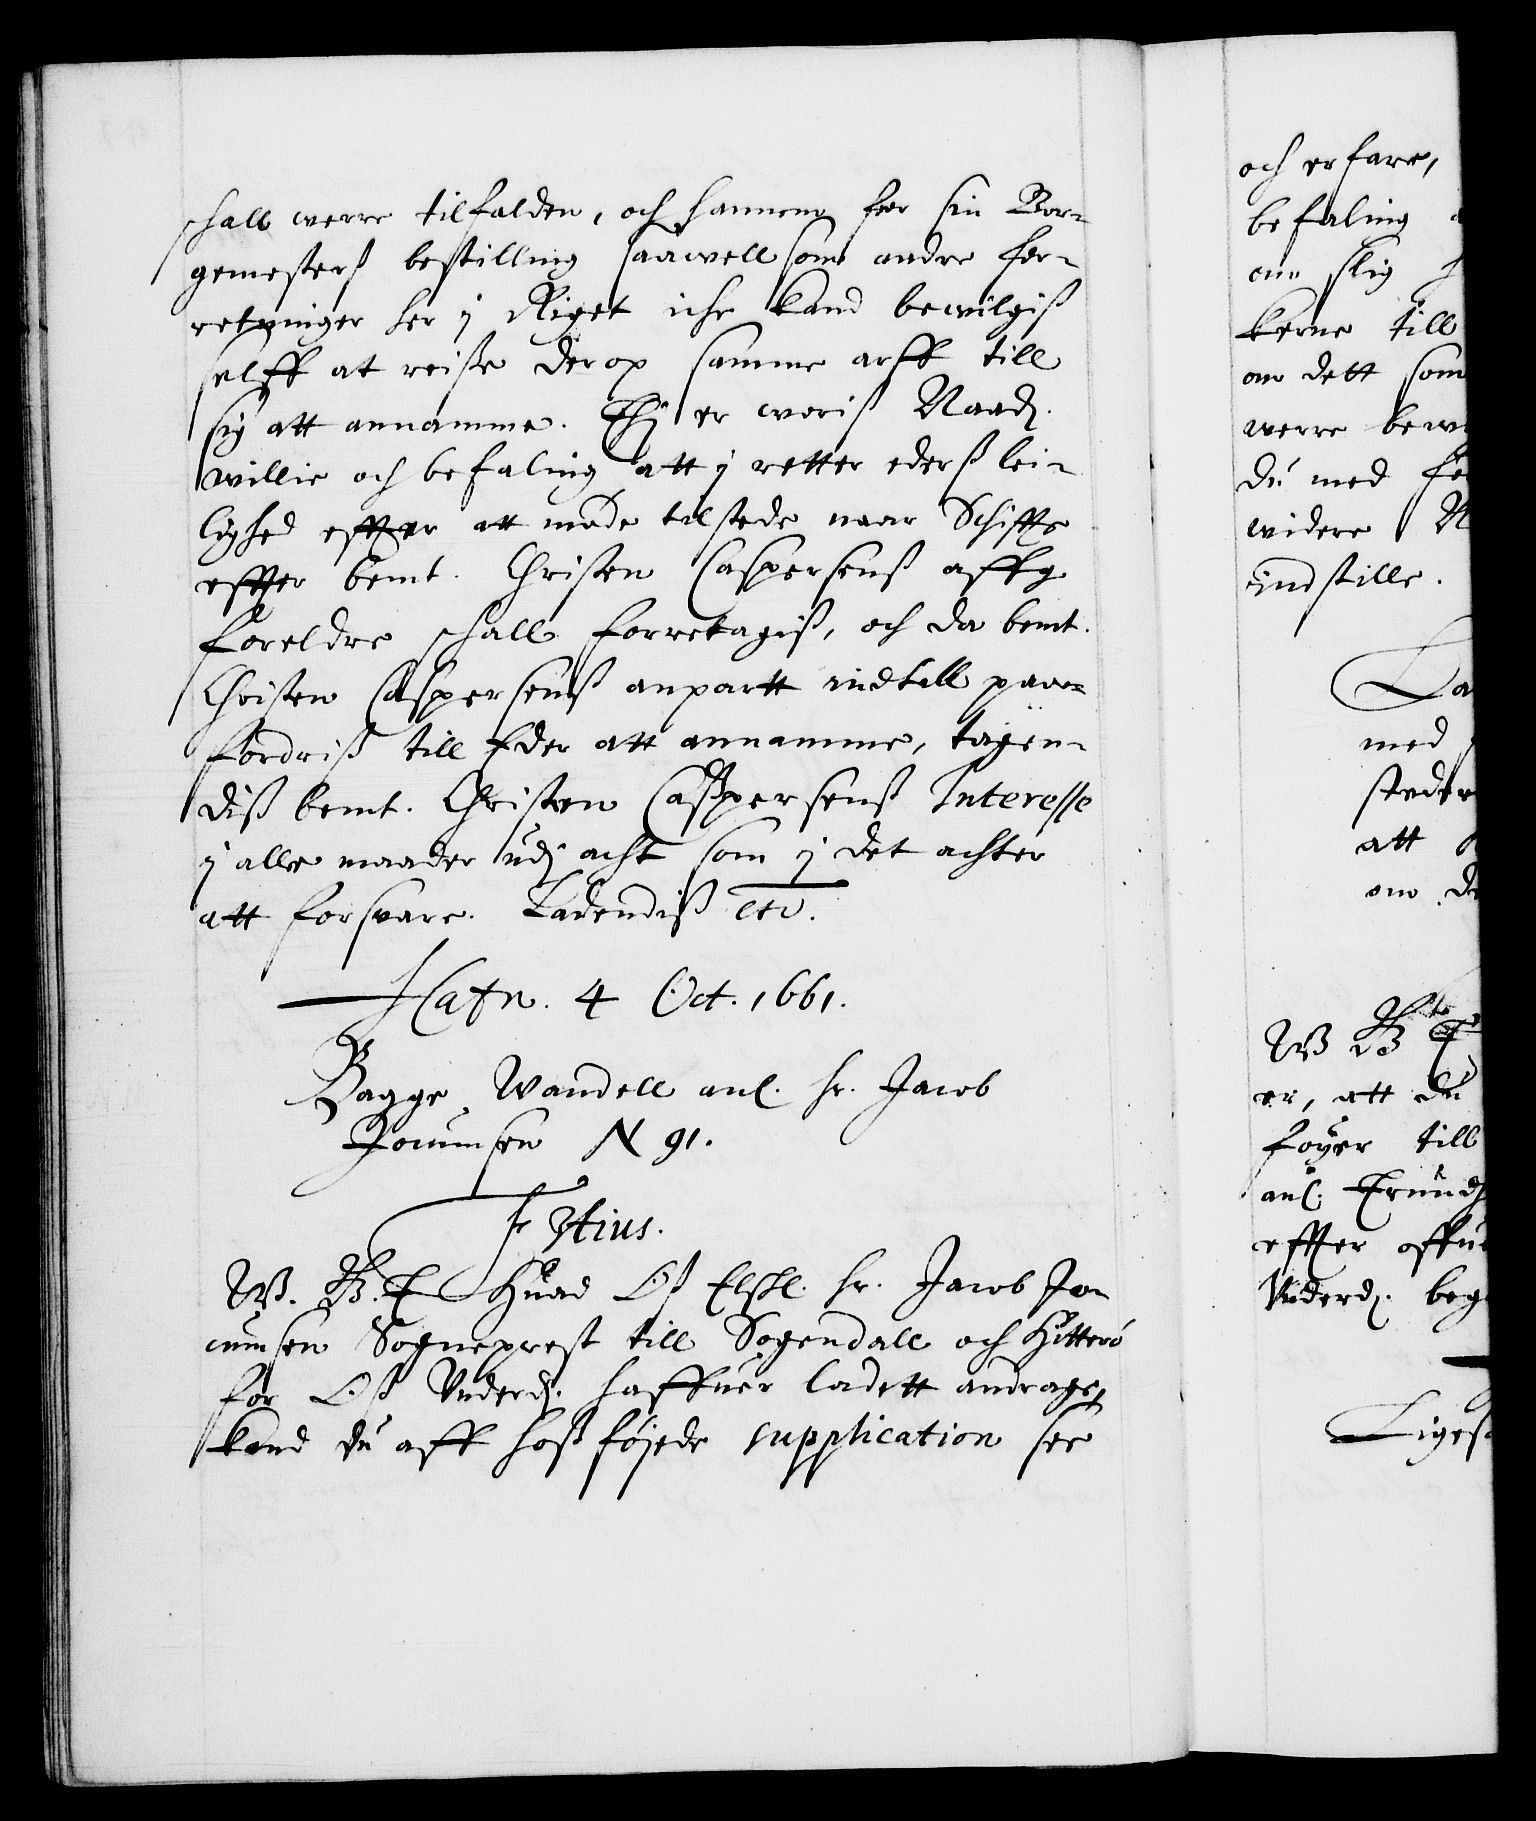 schall werre tilfalden, och hannem for sin Bor-
gemesters bestilling saawell som andre for-
retninger her j Riget iche kand bewilgis
selff at reise derop samme arff till
sig att annamme. Thj er woris Naad.
willie och befaling att j retter eders lei-
lighed effter att møde tilstede naar Schiffte
effter bemt. Christen Caspersens affg.
foreldre schall forretagis, och da bemt.
Christen Caspersens anpartt indtill paa-
fordris till Eder att annamme, tagen-
dis bemt. Christen Caspersens Interesse
j alle maader udj acht som j det achter
att forsvare. Ladendis etc.
Hafn. 4 Oct. 1661.
Bagge Wandell anl. hr. Jacob
Jocumsen N 91.
F 3tius.
W. G. T Huad Os Elskl. hr. Jacob Jo-
cumsen Sogneprest till Sogendall och Hitterö
for Os Underd. haffuer ladett andrage,
kand du aff hosföjede supplication see
och erfare,
befaling
om slig
kerne till
om dett som
werre
du med
widere
indstille.
med
att
om
er, att du
föyer till
anl.
effter
Underd.